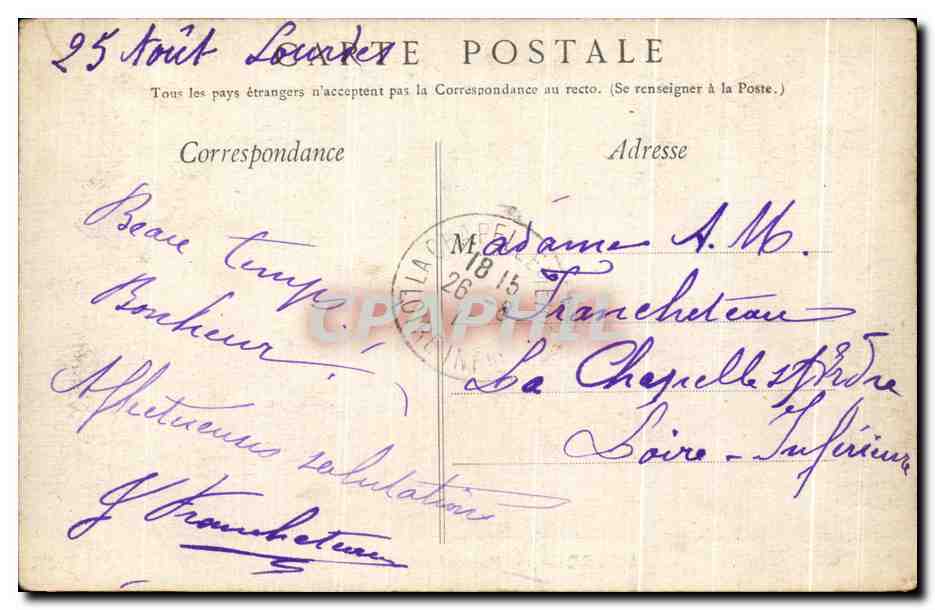 25 Août Lourdes
CARTE POSTALE
Tous les pays étrangers n'acceptent pas la Correspondance au recto. (Se renseigner à la Poste.)
Correspondance
Beau temps !
Bonheur !
Affectueuses salutations
Y Francheteau
Adresse
Madame A. M.
Francheteau
La Chapelle s/ Erdre
Loire-Inférieure
LA CHAPELLE
18 15
26 8
LOIRE INF
CPAPHIL